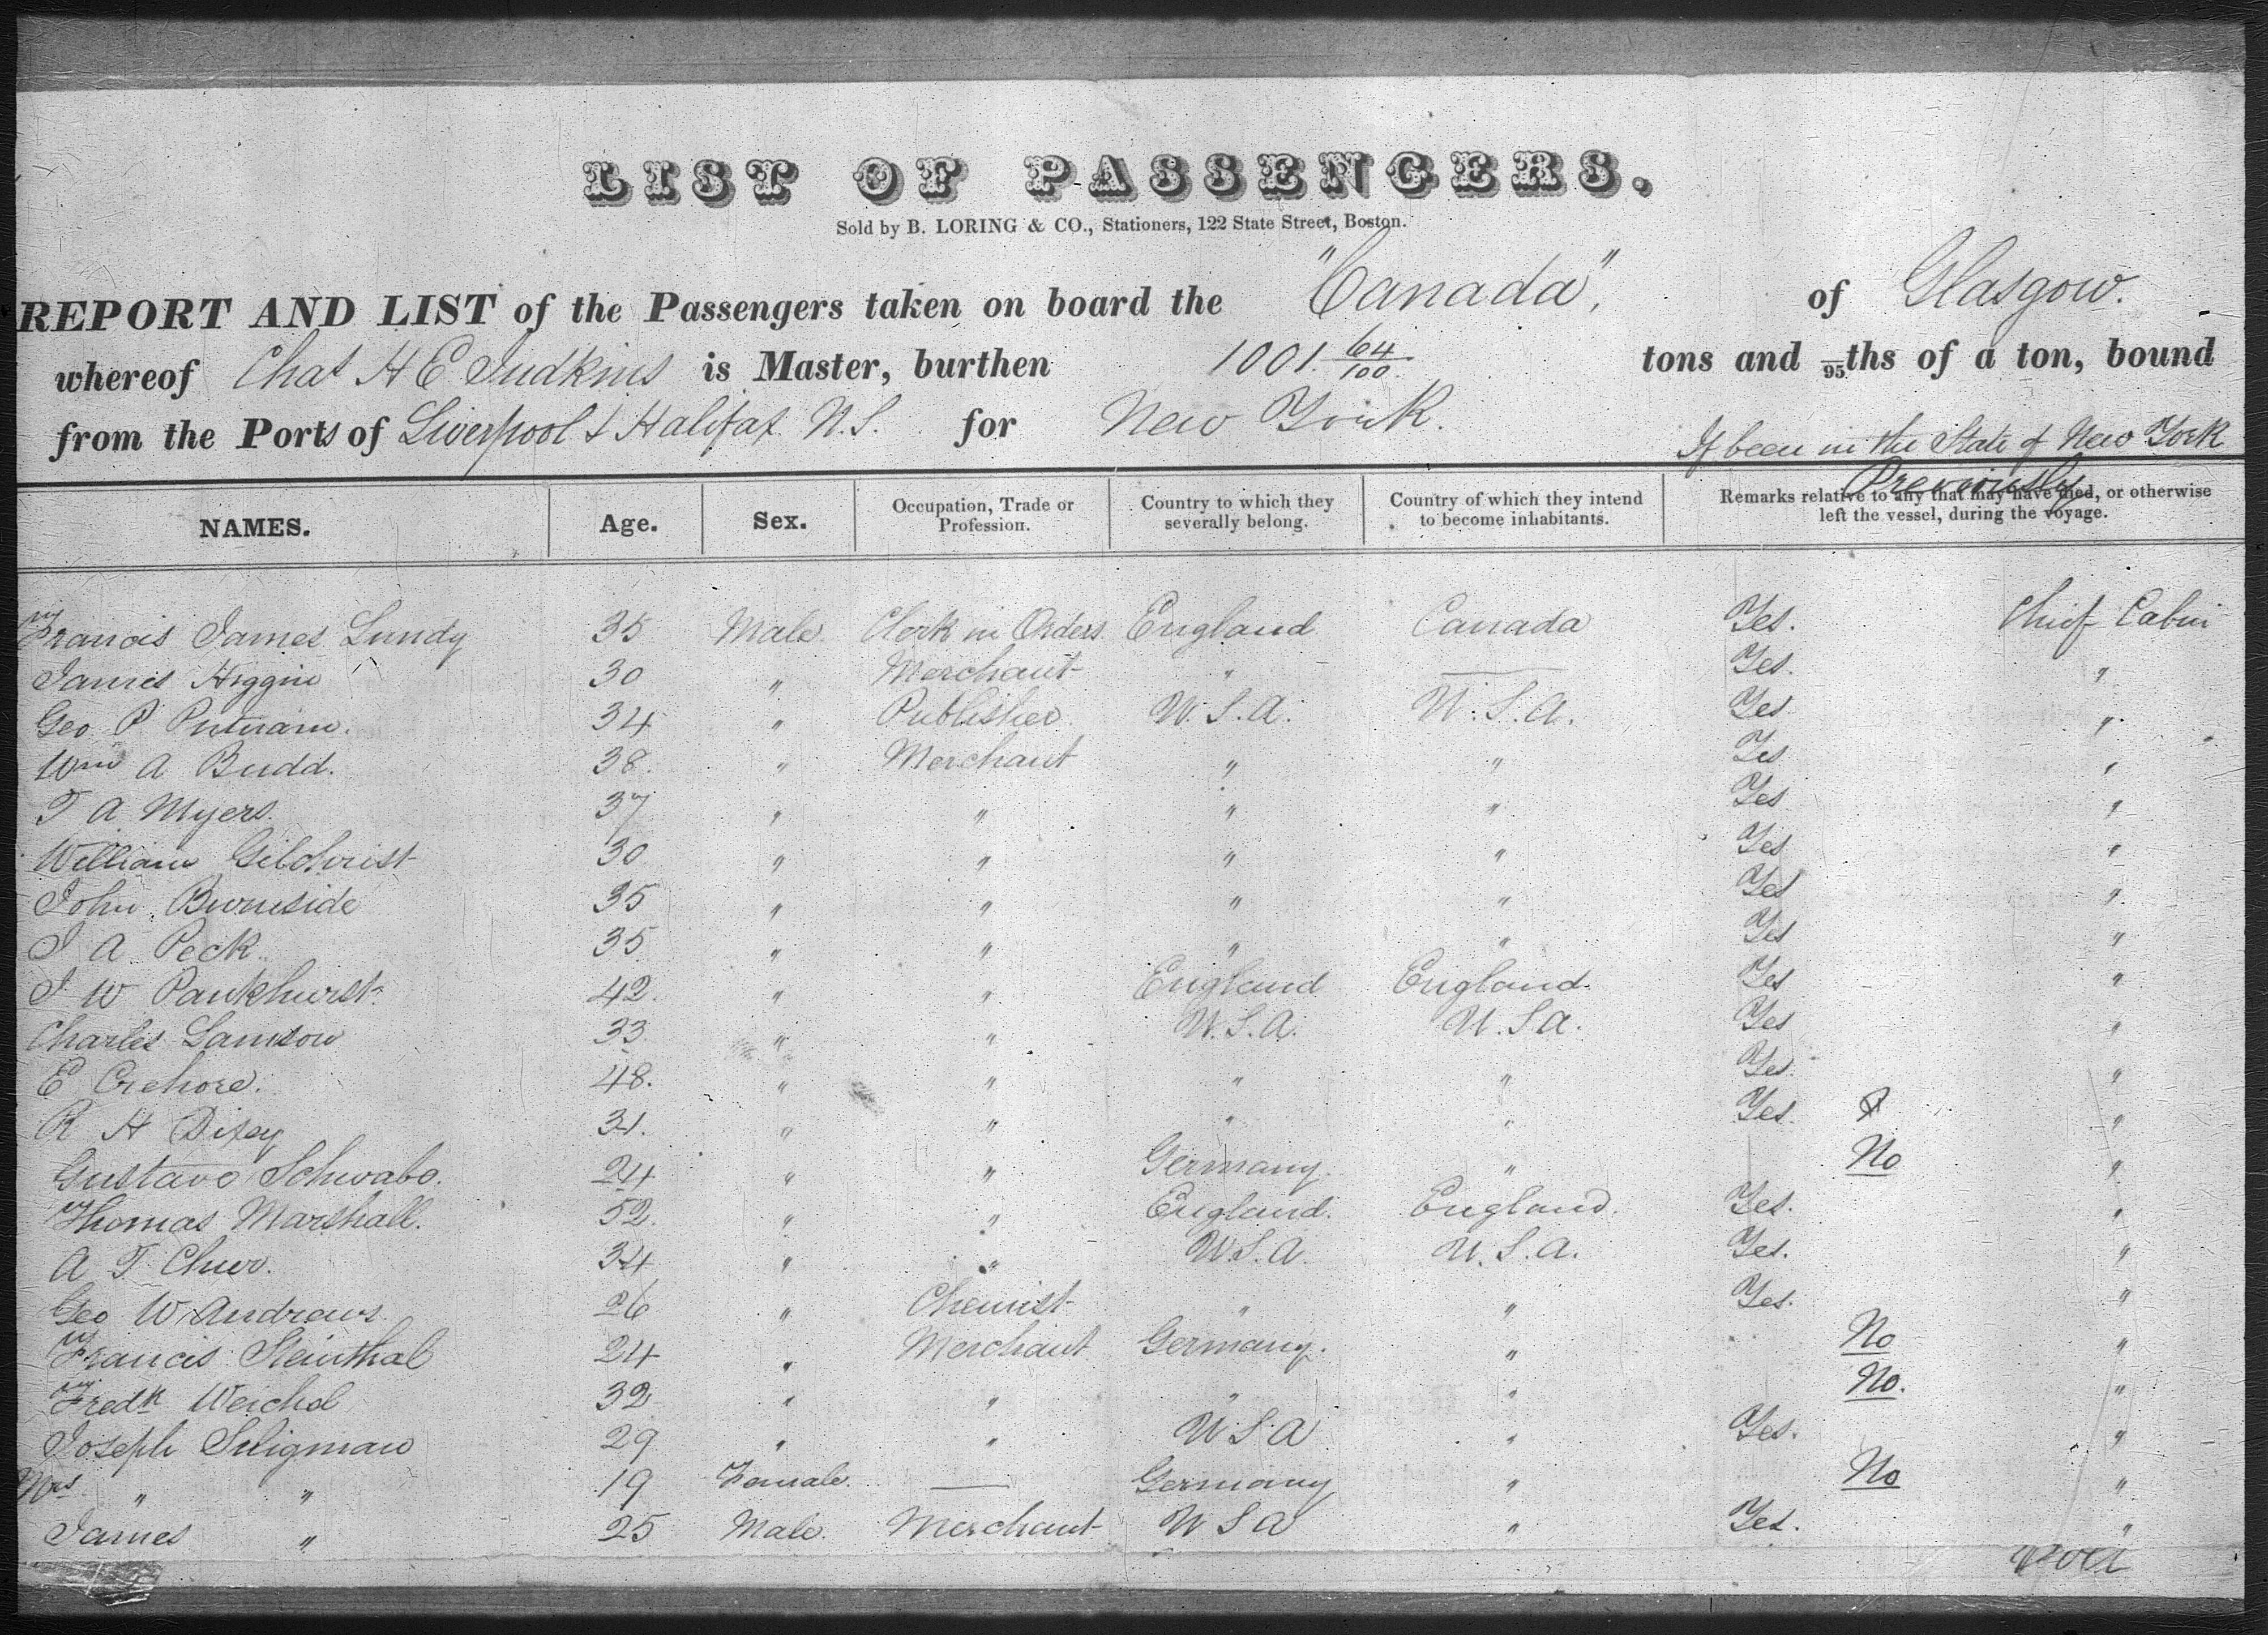 LIST OF PASSENGERS.
Sold by B. LORING & CO., Stationers, 122 State Street, Boston.
REPORT AND LIST of the Passengers taken on board the "Canada", of Glasgow.
whereof Chas H E Judkins is Master, burthen 1001. 64/100 tons and /95ths of a ton, bound
from the Ports of Liverpool & Halifax N.S. for New York.
If been in the State of New York Previously
NAMES. Age. Sex. Occupation, Trade or Profession. Country to which they severally belong. Country of which they intend to become inhabitants. Remarks relative to any that may have died, or otherwise left the vessel, during the voyage.
Francis James Lundy 35 Male Clerk in Orders England Canada Yes. Chief Cabin
James Higgin 30 " Merchant " — Yes. "
Geo P Putnam. 34 " Publisher U.S.A. U.S.A. Yes "
Wm A Budd. 38. " Merchant " " Yes "
T A Myers. 37 " " " " Yes "
William Gilchrist 30 " " " " Yes "
John Burnside 35 " " " " Yes "
J A Peck. 35. " " " " Yes "
J W Pankhurst. 42. " " England England. Yes "
Charles Lamson 33. " " U.S.A. U.S.A. Yes "
E Crehore. 48. " " " " Yes. "
R H Dixey 31. " " " " Yes. "
Gustave Schwabe. 24 " " Germany. " No "
Thomas Marshall. 52. " " England. England. Yes. "
A T Chur. 34 " " U.S.A. U.S.A. Yes. "
Geo W Andrews. 26 " Chemist " " Yes. "
Francis Steinthal 24 " Merchant Germany. " No "
Fredk Weichel 32 " " " " No. "
Joseph Seligman 29 " " U S A " Yes. "
Mrs " " 19 Female. — Germany " No "
James " 25 Male. Merchant U S A " Yes. "
over